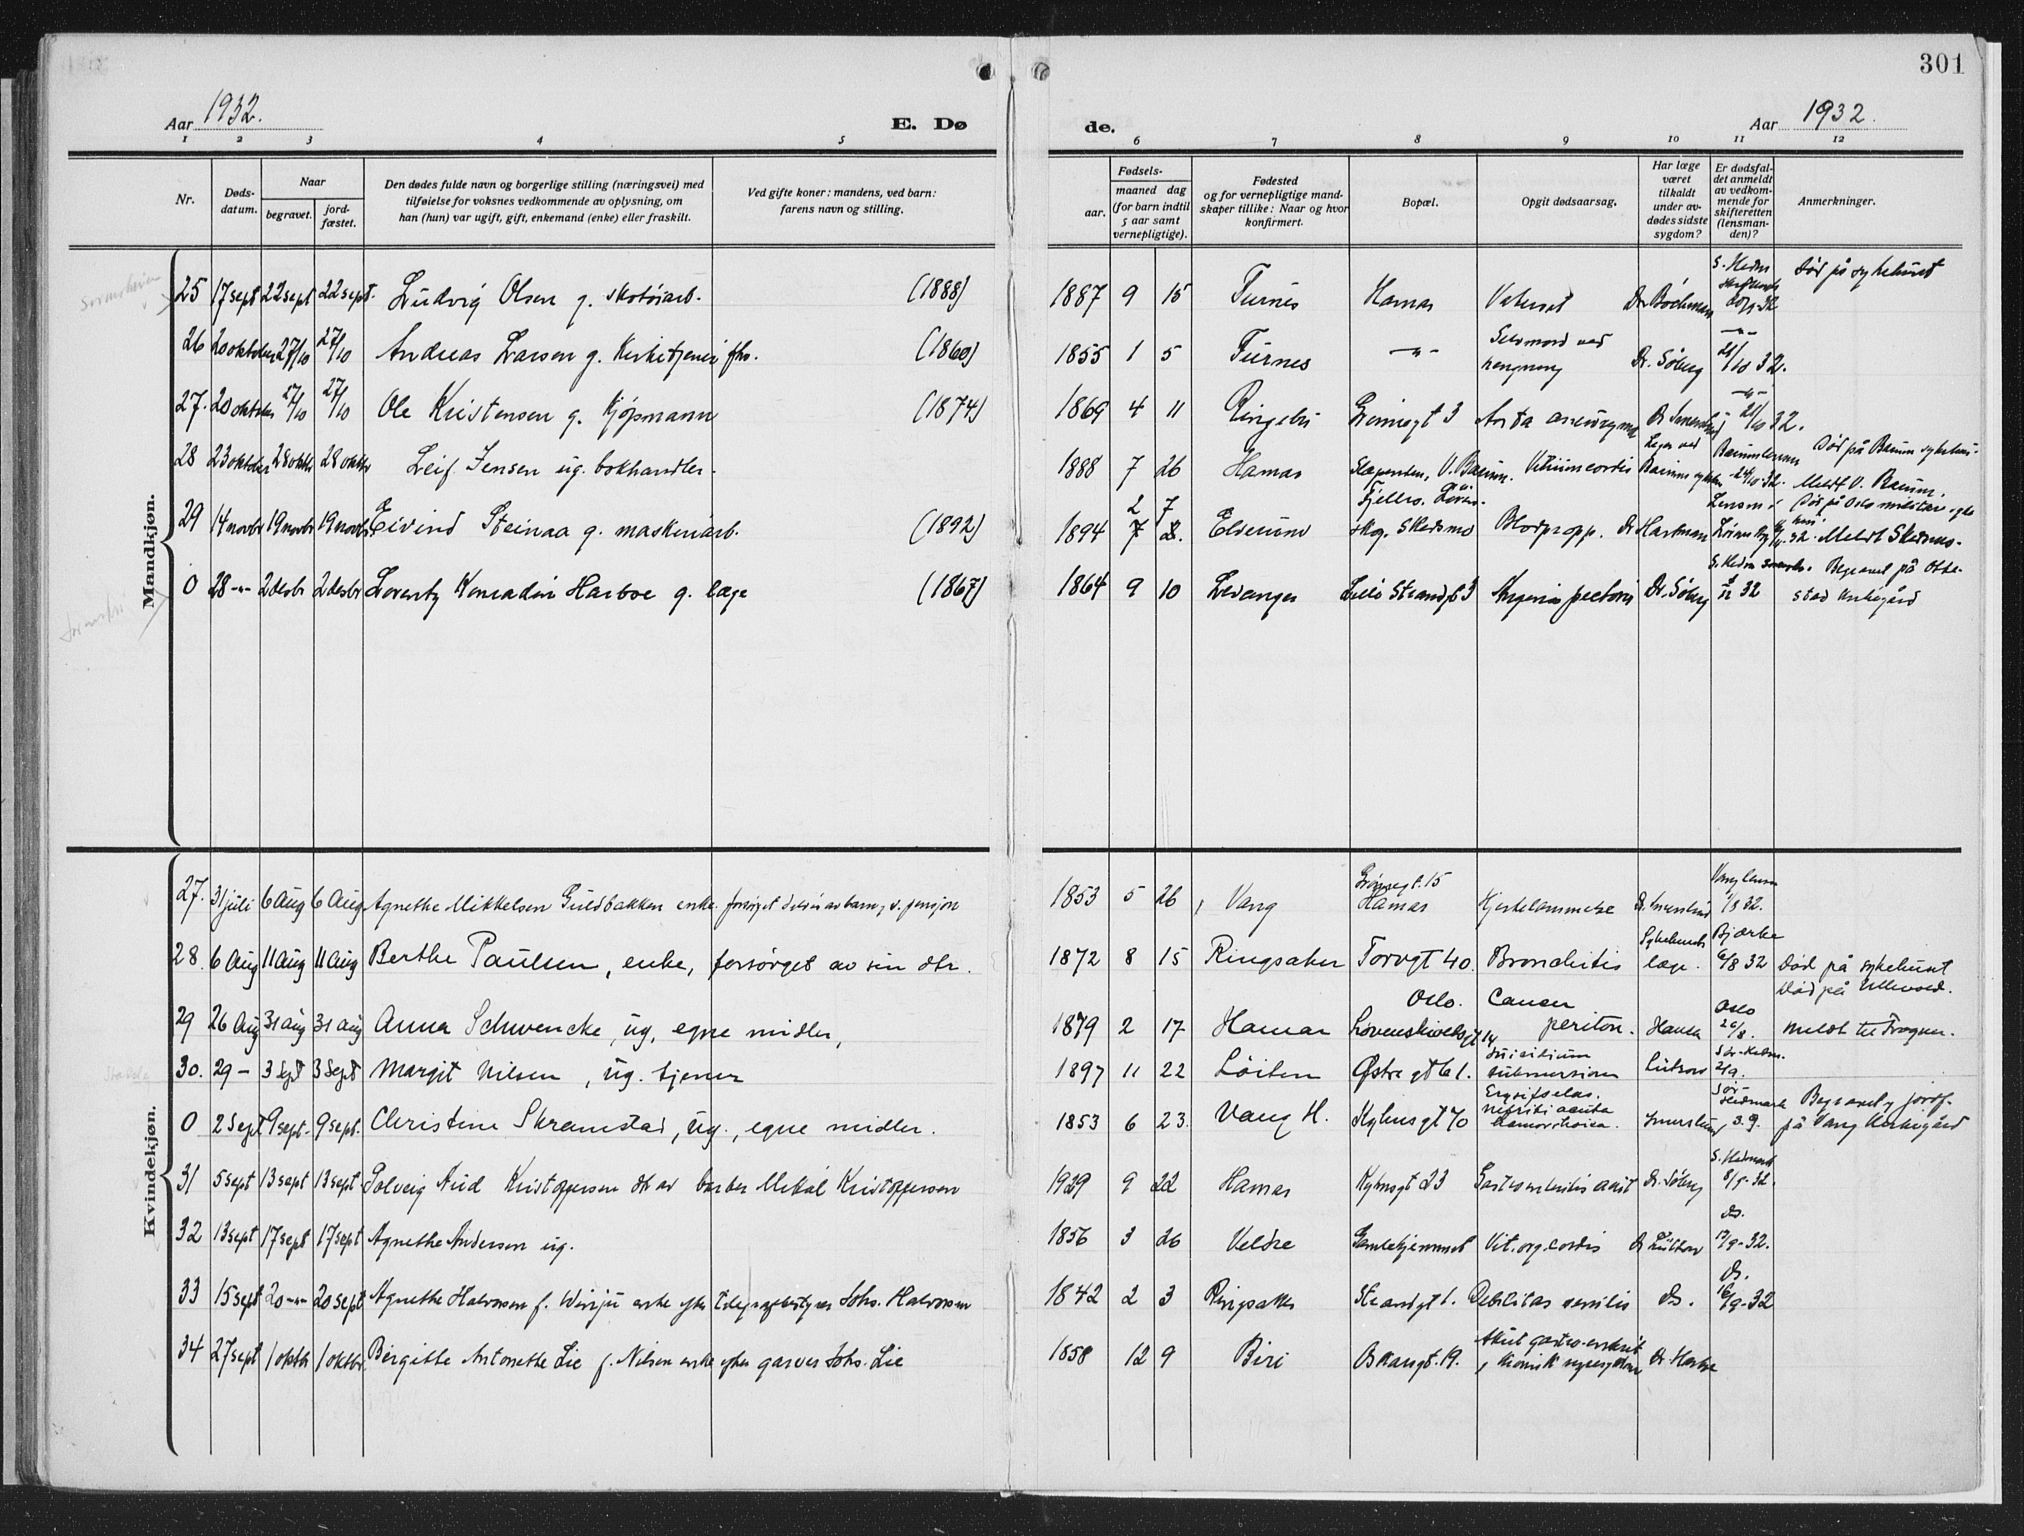 301
Aar 1932. E. Dø de. Aar 1932.
1 2 3 4 5 6 7 8 9 10 11 12
Nr. Døds-datum. Naar begravet. jord-fæstet. Den dødes fulde navn og borgerlige stilling (næringsvei) med tilføielse for voksnes vedkommende av oplysning, om han (hun) var ugift, gift, enkemand (enke) eller fraskilt. Ved gifte koner: mandens, ved barn: farens navn og stilling. Fødsels- aar. maaned dag (for barn indtil 5 aar samt vernepligtige). Fødested og for vernepligtige mand-skaper tillike: Naar og hvor konfirmert. Bopæl. Opgit dødsaarsag. Har læge været tilkaldt under av-dødes sidste sygdom? Er dødsfal-det anmeldt av vedkom-mende for skifteretten (lensman-den)? Anmerkninger.
Mandkjøn.
25 17 sept 22 sept 22 sept. Ludvig Olsen g. skotøiarb. (1888) 1887 9 15 Furnes Hamar Dr. Død på sykehuset
26 20 oktober 27/10 27/10 Andreas Larsen g. Kirketjener fhv. (1860) 1855 1 5 Furnes -"- Selvmord ved hengning Dr. Søberg -"- 21/10 32.
27. 20 oktober 27/10 27/10 Ole Kristensen g. Kjøpmann (1874) 1869 4 11 Ringebu Grønnegt 3 Aorta aneurysme Dr. Smerslud -"- 21/10 32.
28 23 oktober 28 oktbr 28 oktbr Leif Jensen ug. bokhandler. 1888 7 26 Hamar Slependen, V. Bærum. Vitium cordis Læge ved Bærums sykehus 24/10 32. Død på Bærum sykehus. Meldt V. Bærum.
29 14 novbr 19 novbr 19 novbr Eivind Steinaa g. maskinarb. (1892) 1894 2 7 Elverum skog. Skedsmo Blodpropp. Dr Hartman Lensm. i Død på Oslo militære syke hus. Meldt Skedsmo.
0 28 -"- 2 desbr 2 desbr Lorentz Konradin Harboe g. læge (1867) 1864 9 10 Levanger Lille Strandgt 3 Angina pectoris Dr. Søberg 32 Begravet på Otte-stad kirkegård
Kvindekjøn.
27. 31 juli 6 Aug 6 Aug Agnethe Mikkelsen Guldbakken enke forsørget delvis av barn, v. pensjon 1853 5 26 Vang Grønnegt. 15 Hamar Hjertelammelse Dr. Smerslud Vang lensm 1/8 32.
28. 6 Aug 11 Aug 11 Aug Berthe Paulsen, enke, forsørget av sin dtr. 1872 8 15 Ringsaker Torvgt 40. Bronchitis Sykehusets læge. Bjerke 6/8 32 Død på sykehuset
29 26 Aug 31 aug 31 aug Anna Schwencke, ug, egne midler, 1879 2 17 Hamar Oslo. Løvenskioldsgt 14 Cancer periton. Hansen Oslo 26/8. Død på Ullevoll. meldt til Frogner.
30. 29 - 3 Sept 3 Sept Margit Nilsen, ug. tjener 1897 11 22 Løiten Østre gt 61. Suicidium submersion Lützow Sør-Hedm. 2/9.
0 2 Sept 9 sept. 9 sept. Christine Skramstad, ug., egne midler. 1853 6 23. Vang H. Skyhusgt 70 Erysipelas. nefritis acuta hæmorrhoica. Smerslund Sør-Hedmark 3.9. Begravet, jordf. på Vang kirkegård
31 5 sept 13 sept 13 sept Solveig Aud Kristoffersen dtr av barber Mikal Kristoffersen 1929 9 22 Hamar 23 Gastroenteritis acut Dr. Søberg S. Hedmark 8/9-32.
32 13 sept 17 sept 17 sept Agnethe Andersen ug. 1856 3 26 Veldre Gamlehjemmet Vit. org. cordis Dr Lützow do. 17/9-32.
33 15 sept 20 -"- 20 sept Agnethe Halvorsen f. enke efter telegrafbestyrer Johs. Halvorsen 1842 2 3 Ringsaker Strandgt 1. Debilitas senilis do. do. 16/9-32
34 27 sept 1 oktbr 1 oktbr Birgitte Antonette Lie f. Nilsen enke efter garver Johs. Lie 1858 12 9 Biri Oskarsgt. 19. Akut gastro-enterit, kronisk nyresygdom Dr Harboe